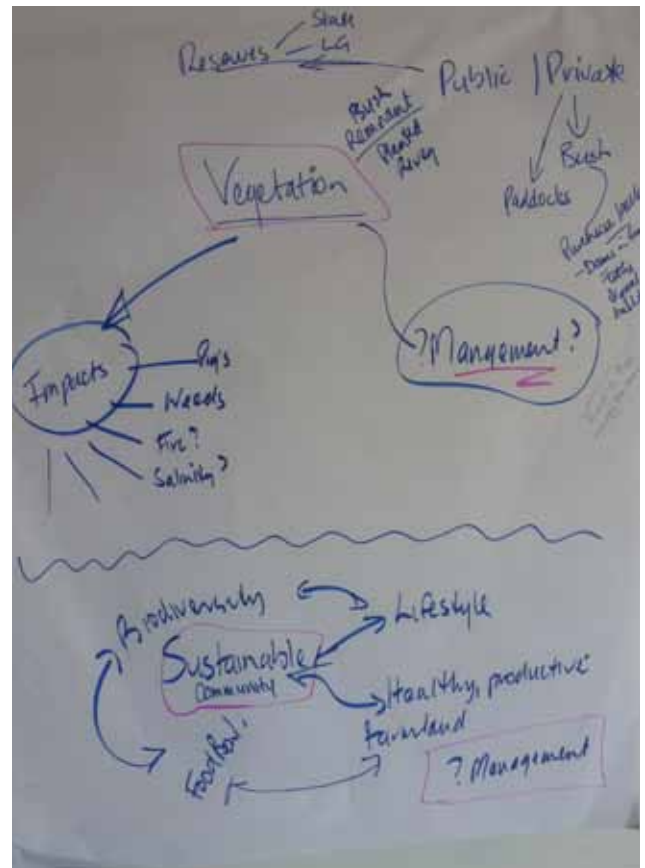 State
Reserves
LG
Public / Private
Bush
Remnant
Planted
Reveg
Bush
Paddocks
Purchase
Vegetation
? Management ?
Impacts
Pig's
Weeds
Fire?
Salinity?
Biodiversity
Lifestyle
Sustainable
Community
Healthy, productive
farmland
Food Bowl
? Management